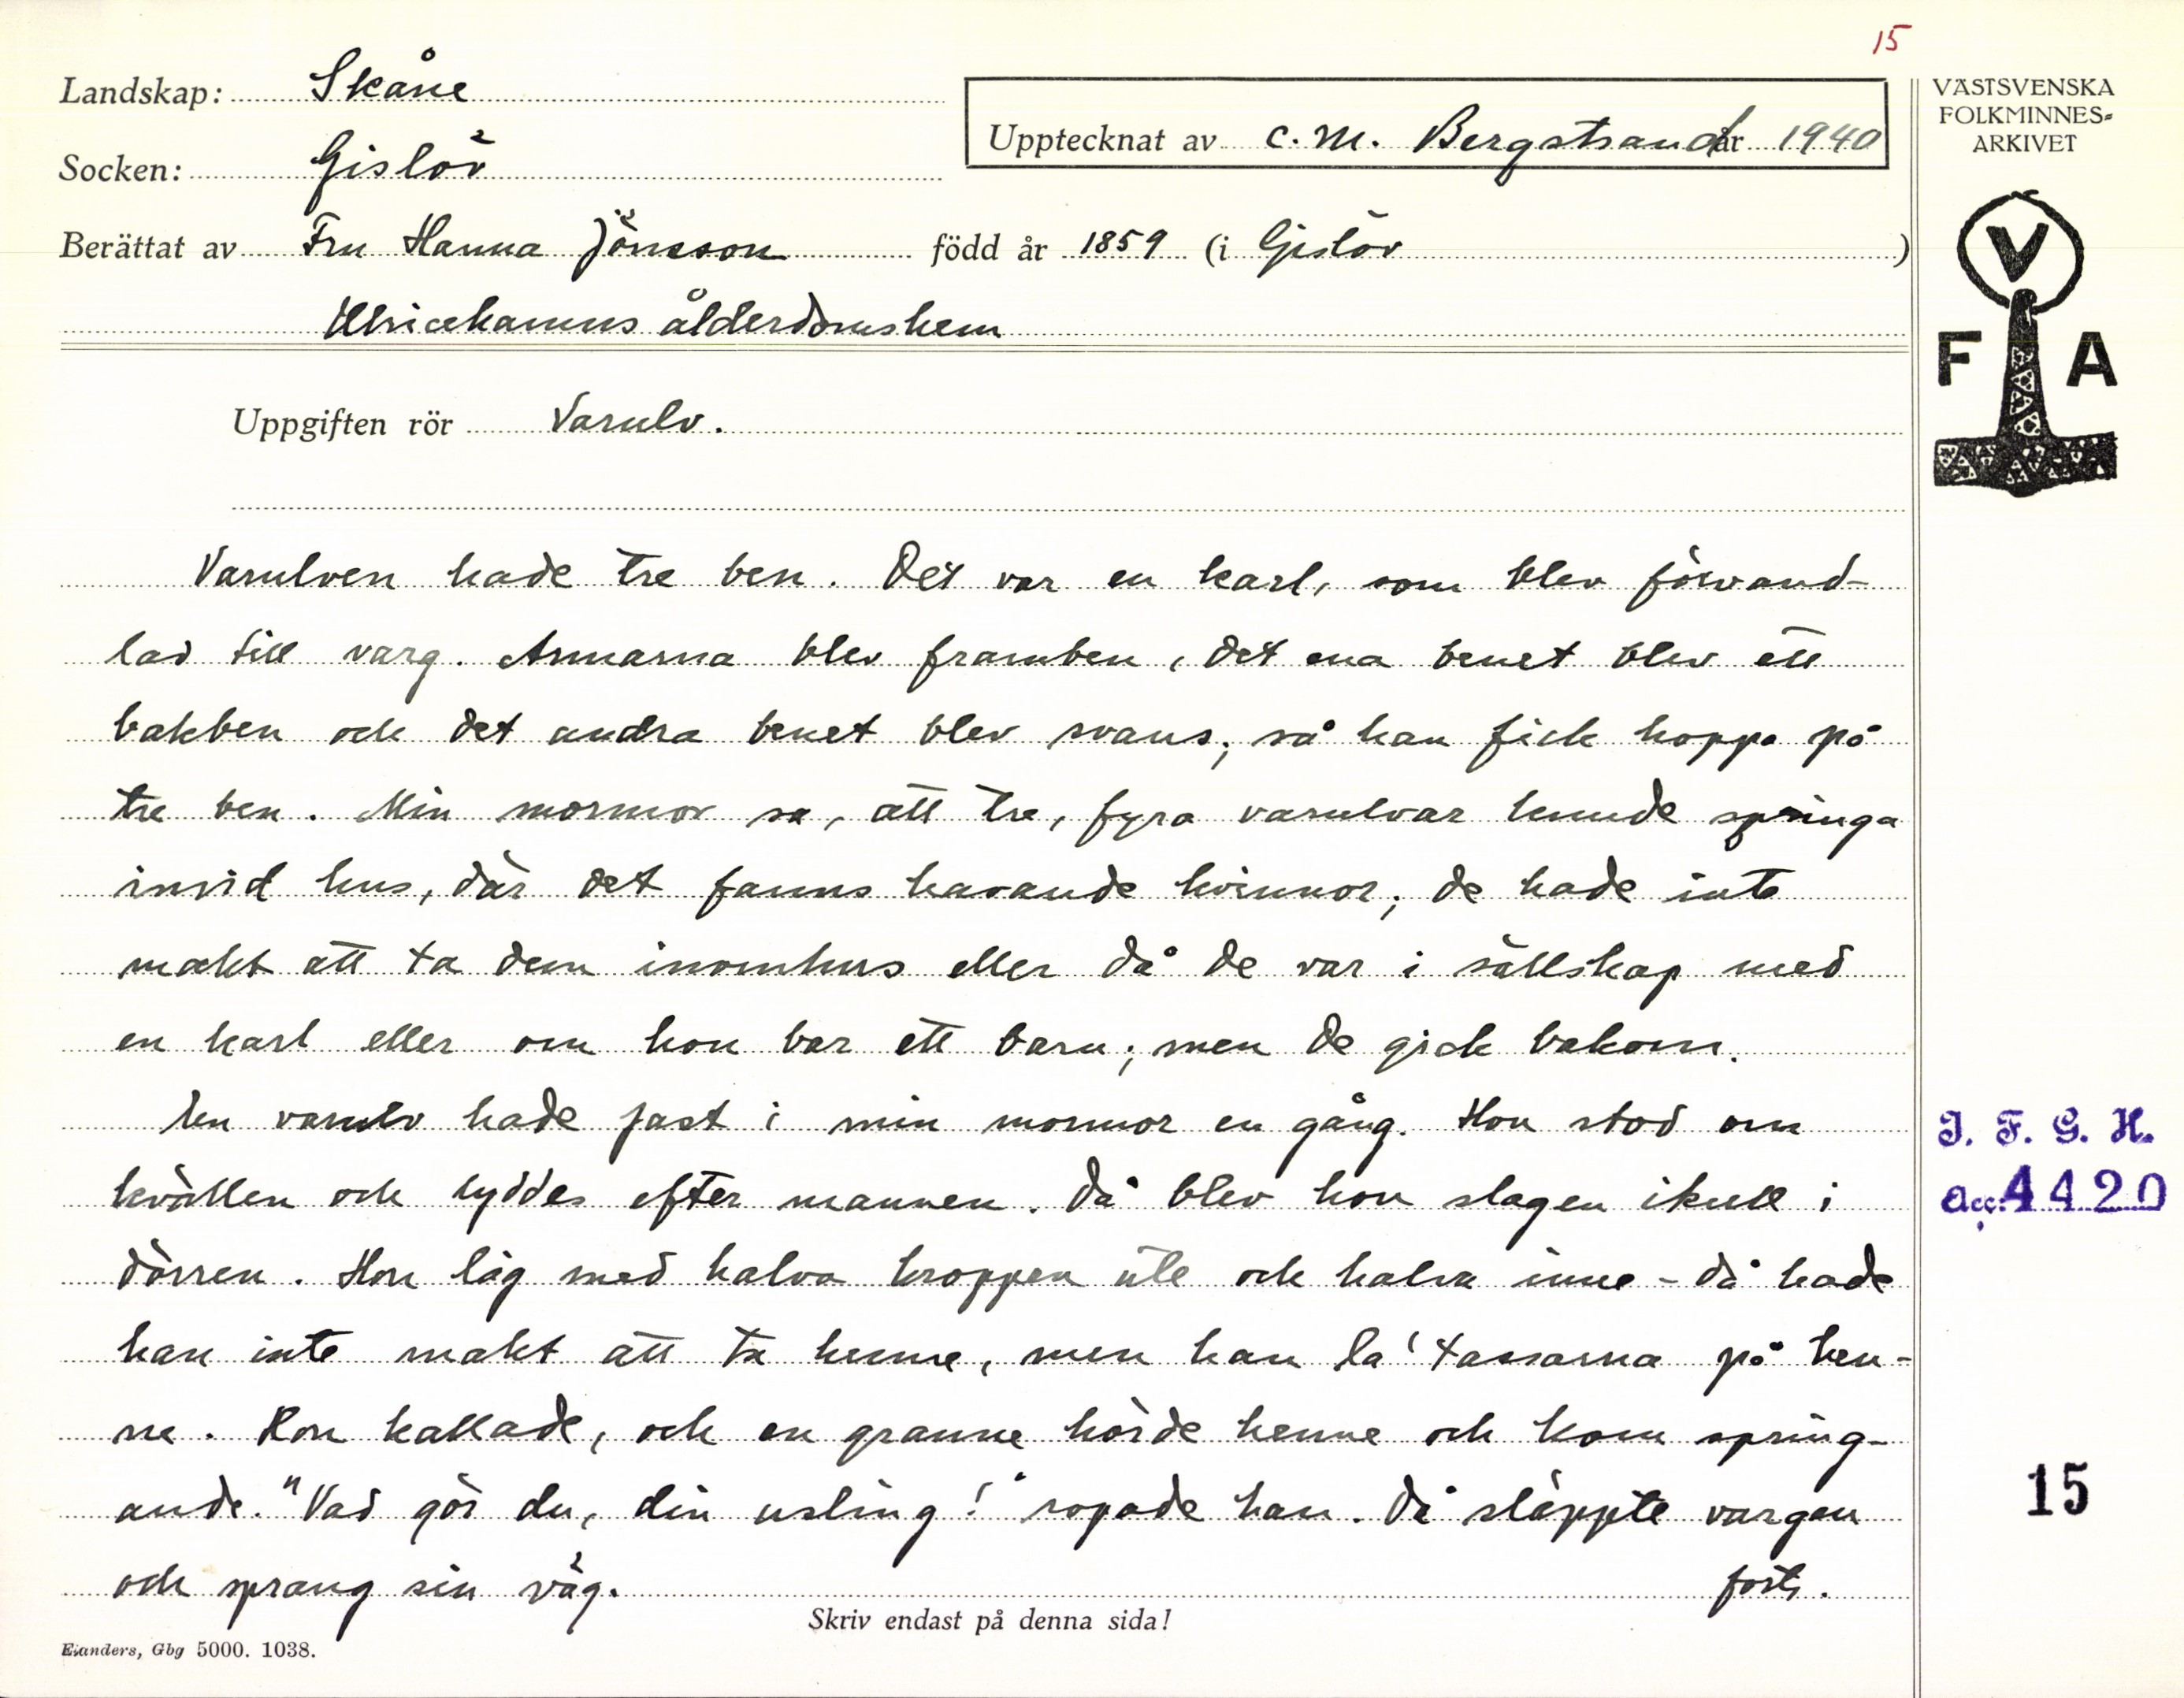 15
Landskap: Skåne
Upptecknat av C. M. Bergstrand år 1940
Socken: Gislöv
Berättat av Fru Hanna Jönsson född år 1859 (i Gislöv )
Ulricehamns ålderdomshem
VÄSTSVENSKA
FOLKMINNES-
ARKIVET
V
F A
Uppgiften rör Varulv.
Varulven hade tre ben. Det var en karl, som blev förvand-
lad till varg. Armarna blev framben, det ena benet blev ett
bakben och det andra benet blev svans; så han fick hoppa på
tre ben. Min mormor sa, att tre, fyra varulvar kunde springa
invid hus, där det fanns havande kvinnor; de hade inte
makt att ta dem inomhus eller då de var i sällskap med
en karl eller om hon bar ett barn; men de gick bakom.
En varulv hade fast i min mormor en gång. Hon stod om
kvällen och lyddes efter mannen. Då blev hon slagen ikull i
dörren. Hon låg med halva kroppen ute och halva inne - då hade
han inte makt att ta henne, men han la' tassarna på hen-
ne. Hon kallade, och en granne hörde henne och kom spring-
ande. "Vad gör du, din usling!" ropade han. Då släppte vargen
och sprang sin väg. forts.
Skriv endast på denna sida!
Elanders, Gbg 5000. 1038.
I. F. G. H.
Acc. 4420
15